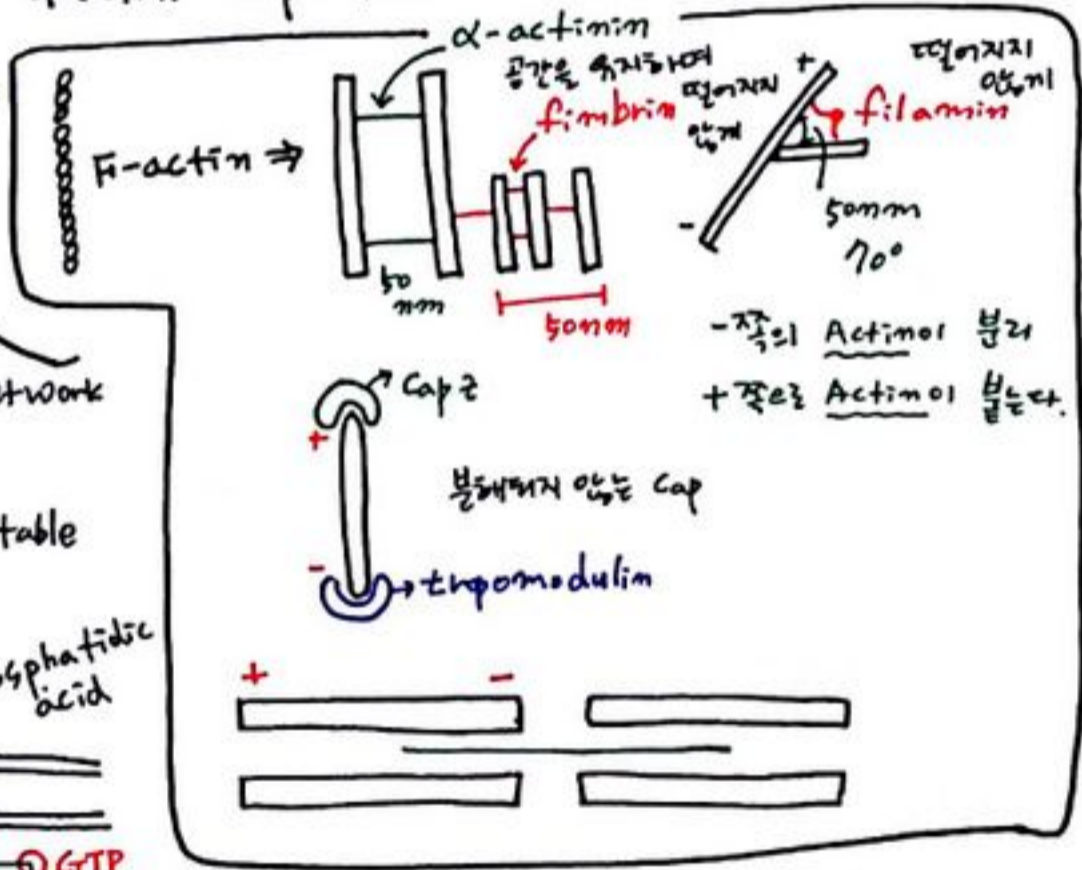 α-actinin
공간을 유지하며
떨어지지
않게
fimbrin
F-actin ⇒
50
nm
50nm
+
떨어지지
않게
filamin
-
50nm
70°
-쪽의 Actin이 분리
+쪽으로 Actin이 붙는다.
Cap Z
+
분해되지 않는 Cap
-
tropomodulin
+ -
twork
table
sphatidic
acid
GTP